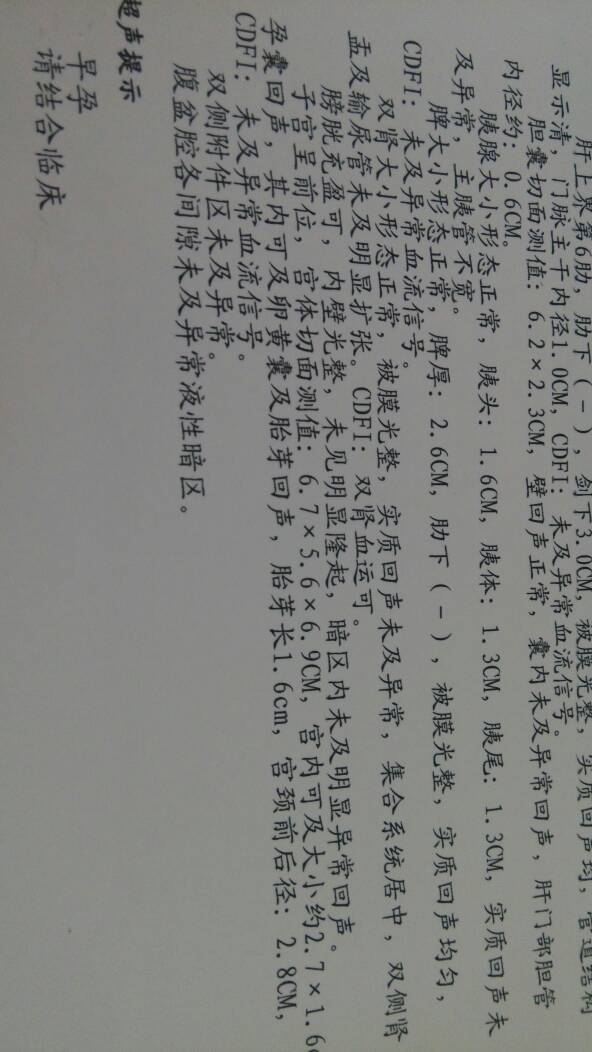 肝上界第6肋，肋下（-），剑下3.0CM，被膜光整，实质回声均，管道结构
显示清，门脉主干内径1.0CM，CDFI：未及异常血流信号。
胆囊切面测值：6.2×2.3CM，壁回声正常，囊内未及异常回声，肝门部胆管
内径约：0.6CM。
胰腺大小形态正常，胰头：1.6CM，胰体：1.3CM，胰尾：1.3CM，实质回声未
及异常，主胰管不宽。
脾大小形态正常，脾厚：2.6CM，肋下（-），被膜光整，实质回声均匀，
CDFI：未及异常血流信号。
双肾大小形态正常，被膜光整，实质回声未及异常，集合系统居中，双侧肾
盂及输尿管未及明显扩张。CDFI：双肾血运可。
膀胱充盈可，内壁光整，未见明显隆起，暗区内未及明显异常回声。
子宫呈前位，宫体切面测值：6.7×5.6×6.9CM，宫内可及大小约2.7×1.6
孕囊回声，其内可及卵黄囊及胎芽回声，胎芽长1.6cm，宫颈前后径：2.8CM，
CDFI：未及异常血流信号。
双侧附件区未及异常。
腹盆腔各间隙未及异常液性暗区。
超声提示
早孕
请结合临床